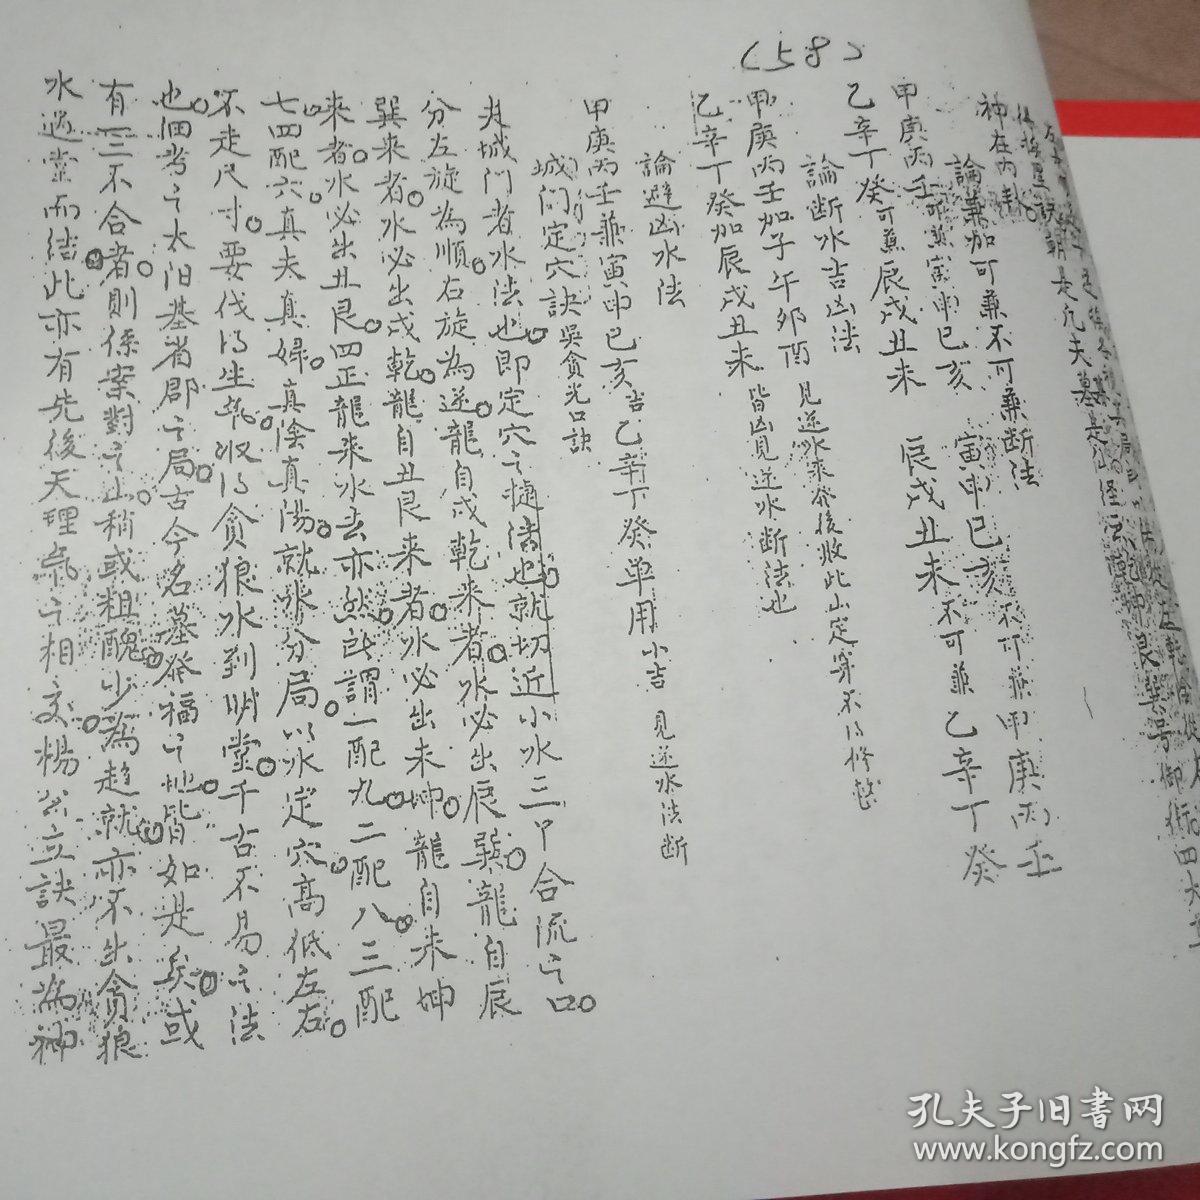 (58)
神在内卦
論兼加可兼不可兼断法
甲庚丙壬可兼寅申巳亥 寅申巳亥不可兼甲庚丙壬
乙辛丁癸可兼辰戌丑未 辰戌丑未不可兼乙辛丁癸
論断水吉凶法
甲庚丙壬加子午卯酉見逆水來發後敗此山定穽不得修整
乙辛丁癸加辰戌丑未皆凶見逆水断法也
論避凶水法
甲庚丙壬兼寅申巳亥吉乙辛丁癸单用小吉 見逆水法断
城门定穴訣 吳貪光口訣
夫城门者水法也即定穴之捷法也就切近小水三叉合流之口
分左旋為順右旋為逆龍自戌乾來者水必出辰巽龍自辰
巽來者水必出戌乾龍自丑艮來者水必出未坤龍自未坤
来者水必出丑艮四正龍来水去亦然所謂一配九二配八三配
七四配六真夫真婦真陰真陽就來分局以水定穴高低左右
不走尺寸要伐得生氣收得貪狼水到明堂千古不易之法
也细考之太阳基省郡之局古今名墓發福之地皆如是矣或
有一三不合者則係案對之山稍或粗醜少為趋就亦不出貪狼
水過堂而结此亦有先後天理氣之相交楊公立訣最為神
孔夫子旧书网
www.kongfz.com